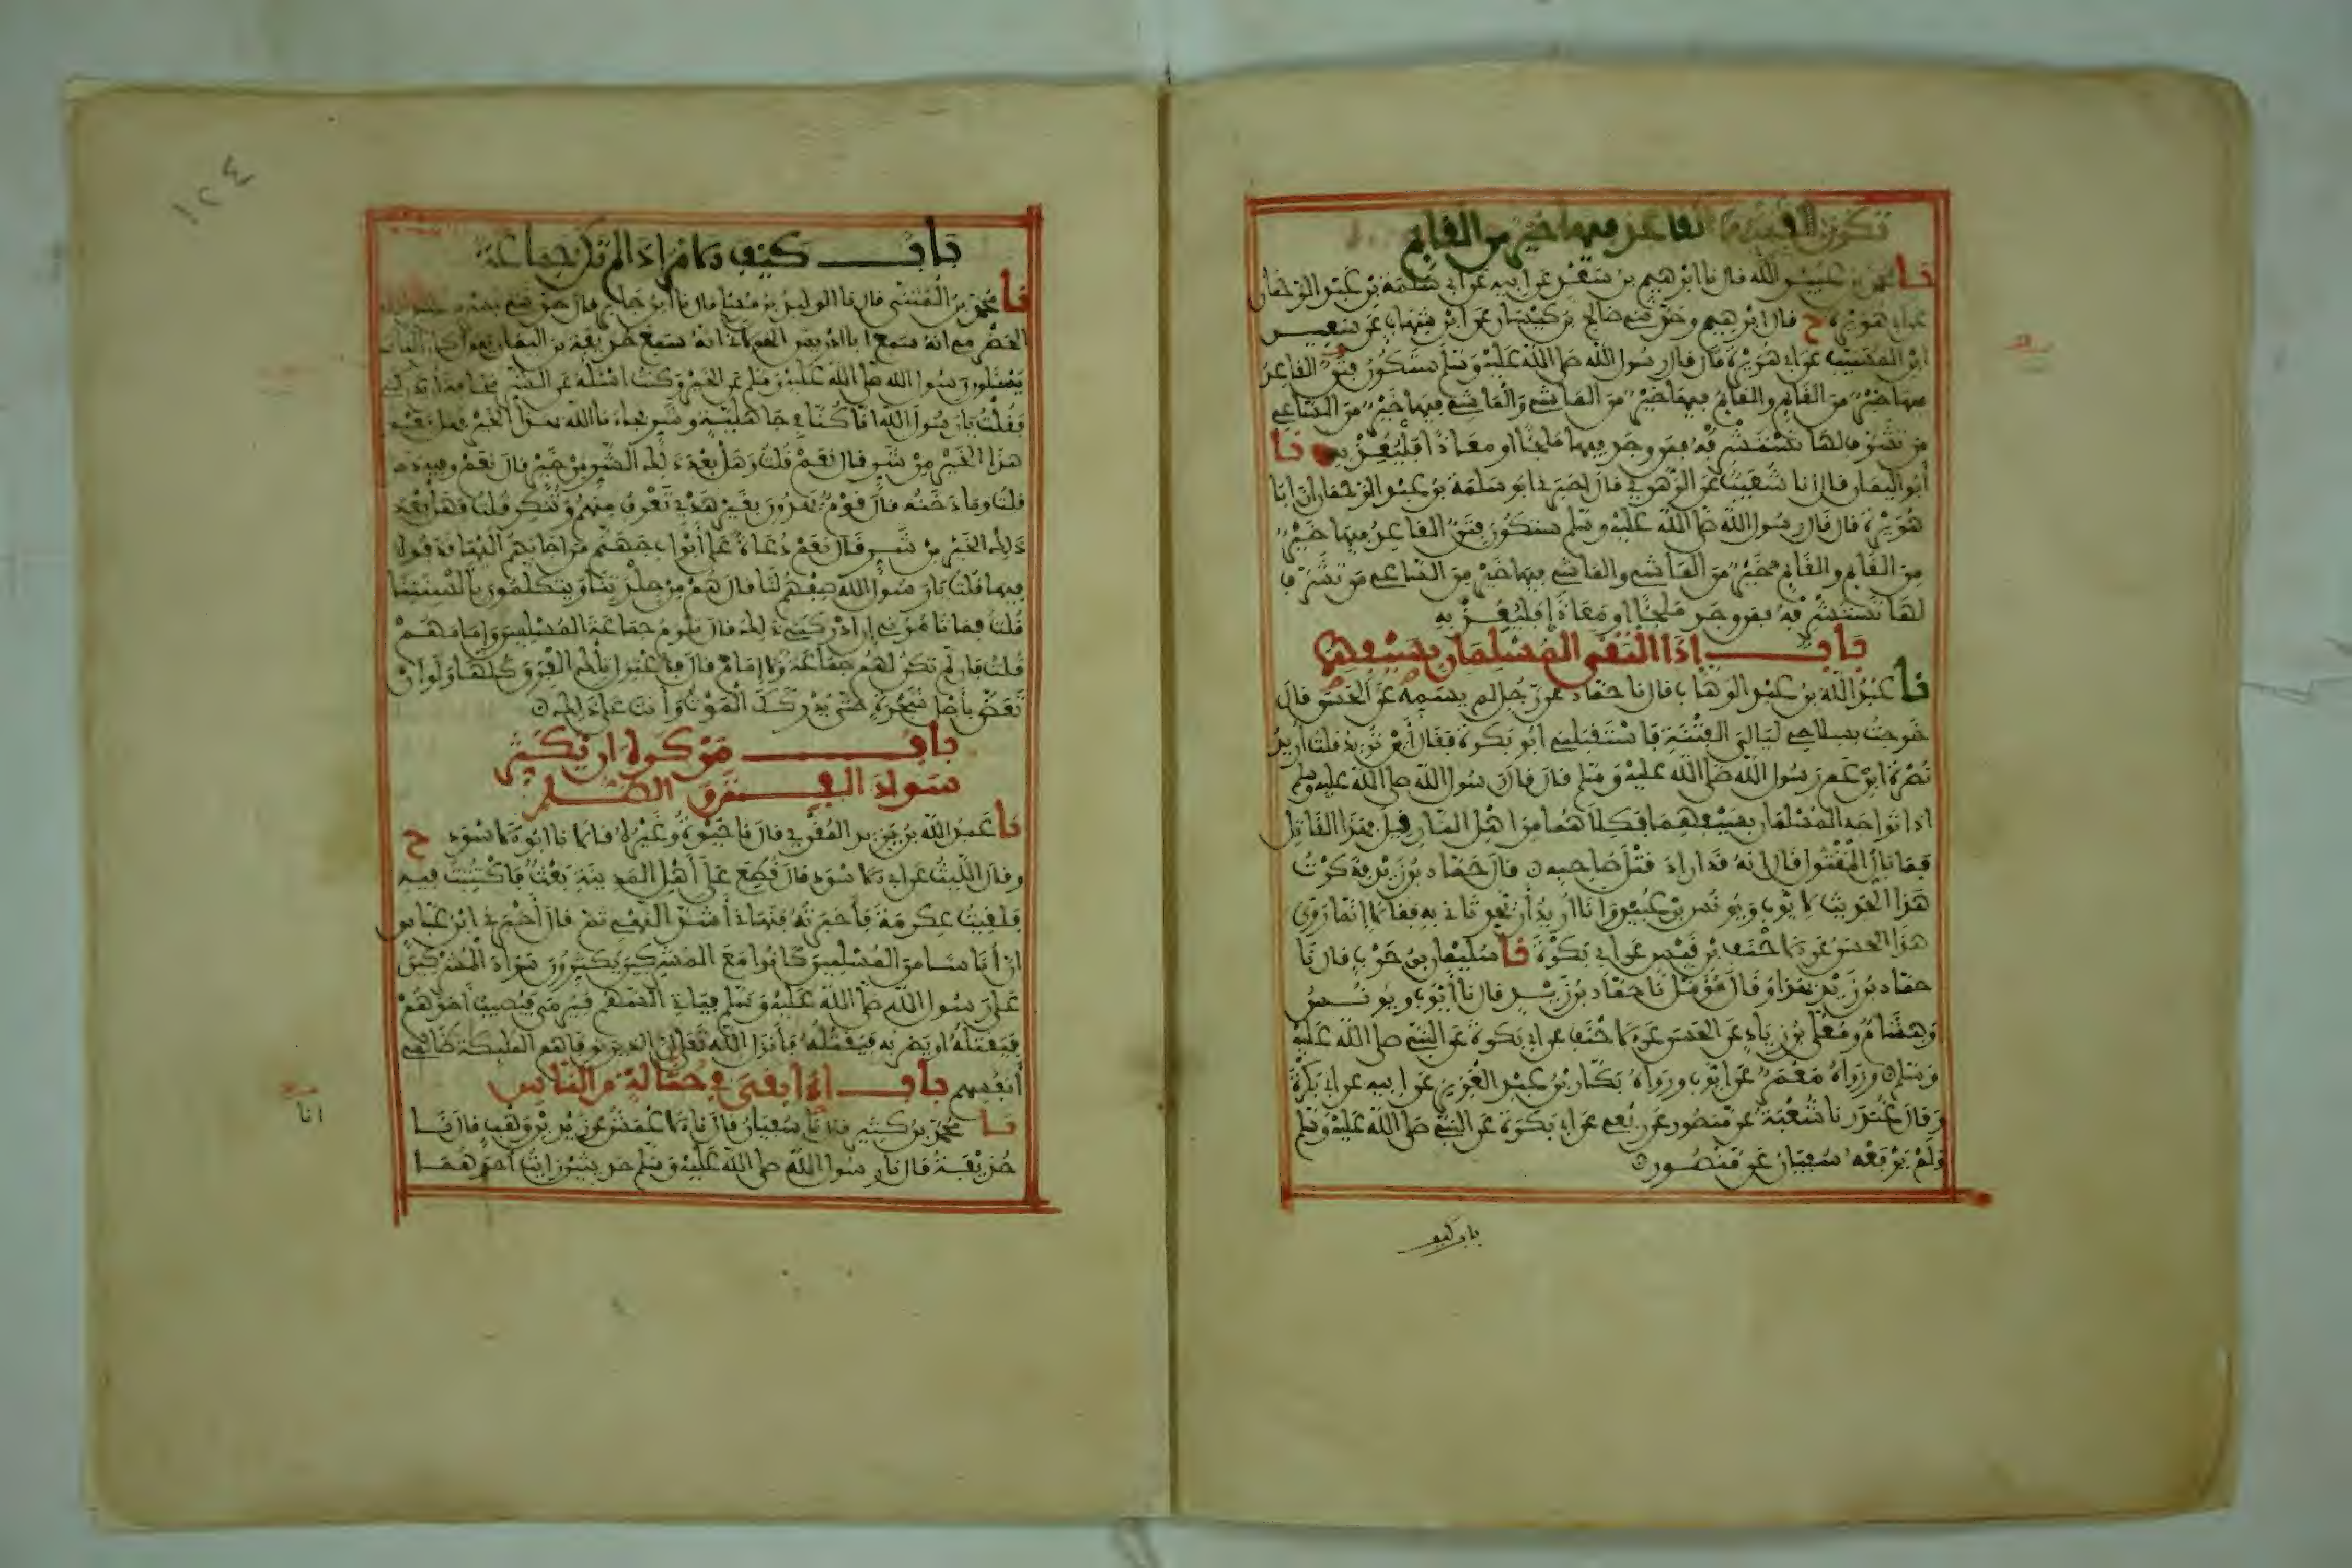 تكون الفتنة القاعد فيها خير من القايم
نا محمد بن عبيد الله قال نا ابرهيم بن سعد عن ابيه عن ابي سلمة بن عبد الرحمان
عن ابي هريرة ح قال ابرهيم وحدثني صالح بن كيسان عن ابن شهاب عن سعيد
ابن المسيب عن ابي هريرة قال قال رسول الله صلى الله عليه وسلم ستكون فتن القاعد
فيها خير من القايم والقايم فيها خير من الماشي والماشي فيها خير من الساعي
من تشرف لها تستشرفه فمن وجد فيها ملجئا او معاذا فليعذ به نا
أبو اليمان قال انا شعيب عن الزهري قال اخبرني ابو سلمة بن عبد الرحمان ان ابا
هريرة قال قال رسول الله صلى الله عليه وسلم ستكون فتن القاعد فيها خير
من القايم والقايم خير من الماشي والماشي فيها خير من الساعي من تشرف
لها تستشرفه فمن وجد ملجئا او معاذا فليعذ به
باب إذا التقى المسلمان بسيفيهما
نا عبد الله بن عبد الوهاب قال نا حماد عن رجل لم يسمه عن الحسن قال
خرجت بسلاحي ليالي الفتنة فاستقبلني ابو بكرة فقال أين تريد قلت أريد
نصرة ابن عم رسول الله صلى الله عليه وسلم قال قال رسول الله صلى الله عليه وسلم
اذا تواجه المسلمان بسيفيهما فكلاهما من اهل النار قيل هذا القاتل
فما بال المقتول قال إنه قد اراد قتل صاحبه قال حماد بن زيد فذكرت
هذا الحديث لايوب ويونس بن عبيد وانا اريد أن يحدثاني به فقالا إنما روى
هذا الحسن عن الاحنف بن قيس عن ابي بكرة نا سليمان بن حرب قال نا
حماد بن زيد بهذا وقال مؤمل نا حماد بن زيد قال نا أيوب ويونس
وهشام ومعلى بن زياد عن الحسن عن الاحنف عن ابي بكرة عن النبي صلى الله عليه
وسلم ورواه معمر عن ايوب ورواه بكار بن عبد العزيز عن ابيه عن ابي بكرة
وقال غندر نا شعبة عن منصور عن ربعي عن ابي بكرة عن النبي صلى الله عليه وسلم
ولم يرفعه سفيان عن منصور
باب كيف
١٢٤
باب كيف الامر إذا لم تكن جماعة
نا محمد بن المثنى قال نا الوليد بن مسلم قال نا ابن جابر قال حدثني بسر بن عبيد الله
الحضرمي انه سمع ابا ادريس الخولاني انه سمع حذيفة بن اليمان يقول كان الناس
يسئلون رسول الله صلى الله عليه وسلم عن الخير وكنت اسئله عن الشر مخافة أن يدركني
فقلت يا رسول الله انا كنا في جاهلية وشر فجاءنا الله بهذا الخير فهل بعد
هذا الخير من شر قال نعم قلت وهل بعد ذلك الشر من خير قال نعم وفيه دخن
قلت وما دخنه قال قوم يهدون بغير هديي تعرف منهم وتنكر قلت فهل بعد
ذلك الخير من شر قال نعم دعاة على أبواب جهنم من اجابهم اليها قذفوه
فيها قلت يا رسول الله صفهم لنا قال هم من جلدتنا ويتكلمون بألسنتنا
قلت فما تامرني إن ادركني ذلك قال تلزم جماعة المسلمين وإمامهم
قلت فإن لم تكن لهم جماعة ولا إمام قال فاعتزل تلك الفرق كلها ولو ان
تعض بأصل شجرة حتى يدركك الموت وانت على ذلك
باب من كره ان يكثر
سواد الفتن والظلم
نا عبد الله بن يزيد المقري قال نا حيوة وغيره قالا نا ابو الاسود ح
وقال الليث عن ابي الاسود قال قطع على أهل المدينة بعث فاكتتبت فيه
فلقيت عكرمة فأخبرته فنهاني أشد النهي ثم قال أخبرني ابن عباس
ان أناسا من المسلمين كانوا مع المشركين يكثرون سواد المشركين
على رسول الله صلى الله عليه وسلم فياتي السهم فيرمى فيصيب أحدهم
فيقتله او يضربه فيقتله فأنزل الله تعالى إن الذين توفاهم الملئكة ظالمي
أنفسهم باب إذا بقي في حثالة من الناس
نا محمد بن كثير قال نا سفيان قال نا الاعمش عن زيد بن وهب قال نا
حذيفة قال نا رسول الله صلى الله عليه وسلم حديثين رايت أحدهما
انا